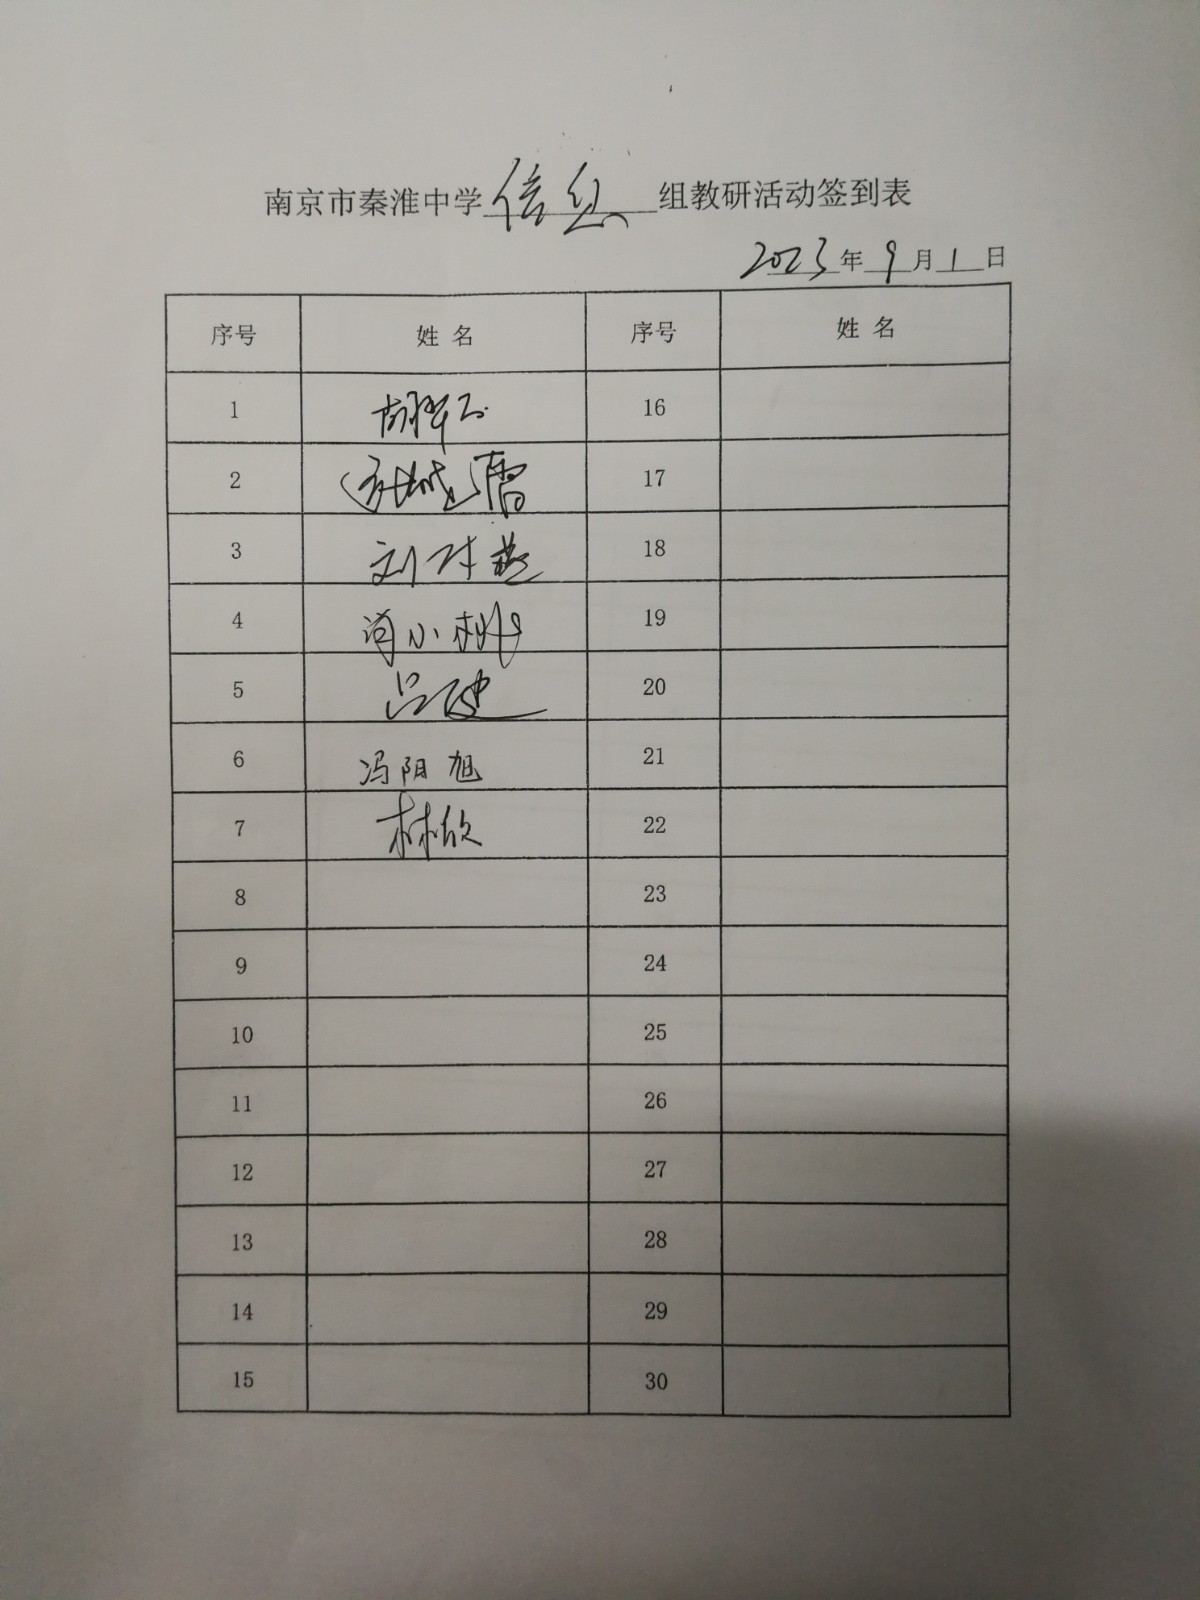 南京市秦淮中学信息组教研活动签到表
2023年9月1日
序号 姓名 序号 姓名
1 16
2 17
3 刘 18
4 肖小 19
5 吕建 20
6 冯阳旭 21
7 林欣 22
8 23
9 24
10 25
11 26
12 27
13 28
14 29
15 30